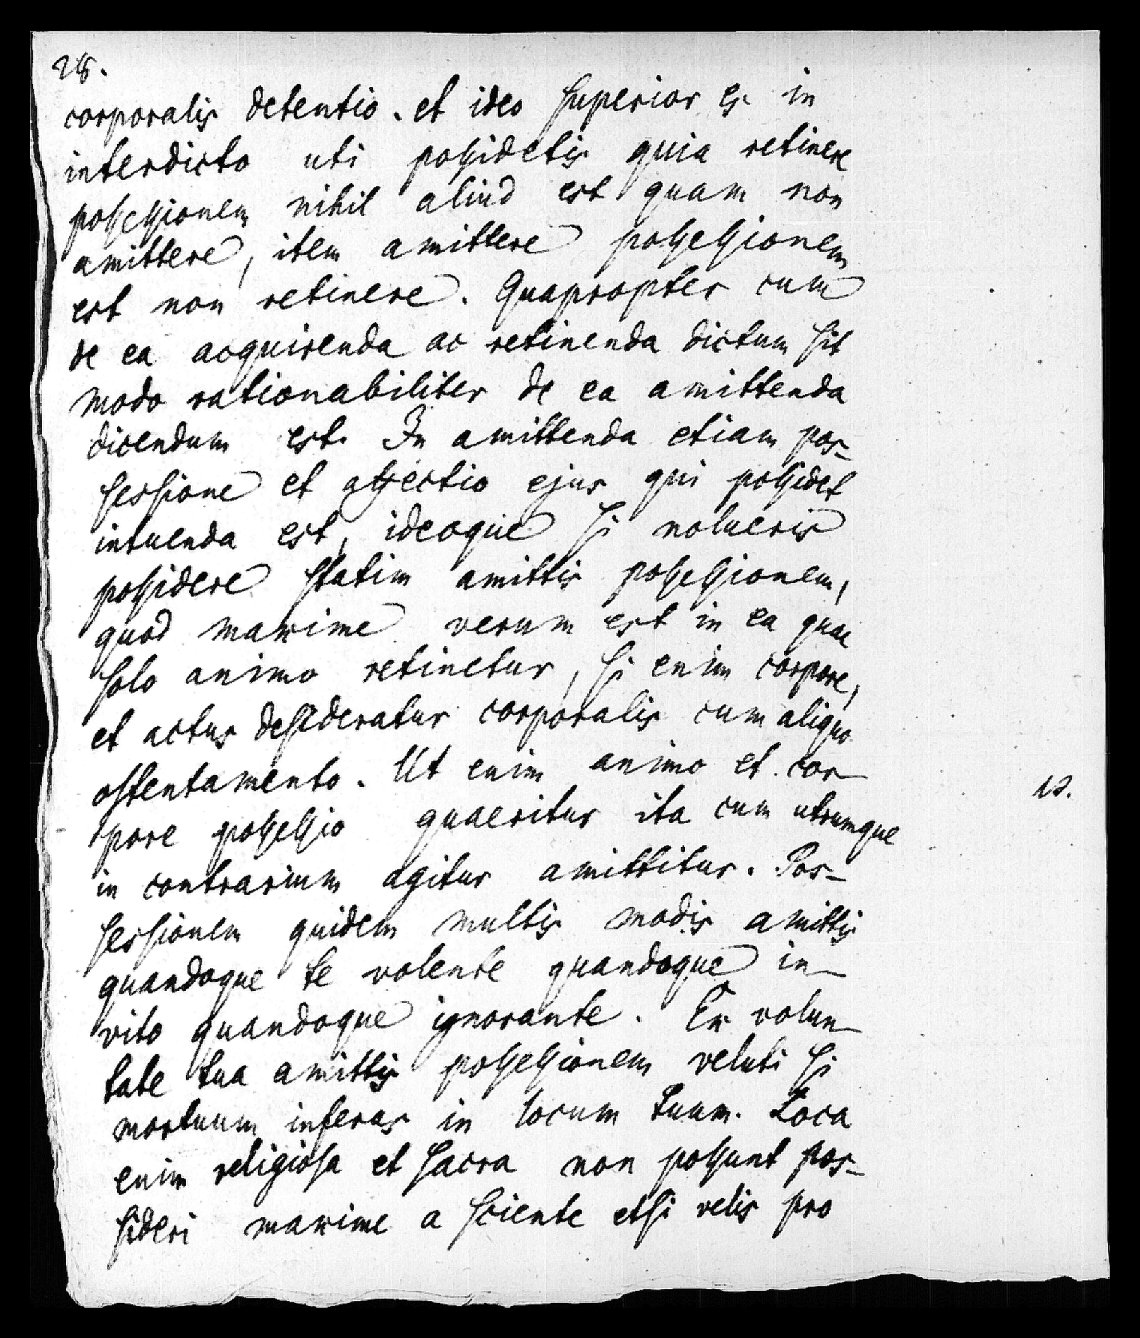 28.
corporalis detentio. et ideo superior es in
interdicto uti possidetis quia retinere
possessionem nihil aliud est quam non
amittere, item amittere possessionem
est non retinere. Quapropter cum
de ea acquirenda ac retinenda dictum sit
modo rationabiliter de ea amittenda
dicendum est. In amittenda etiam pos-
sessione et affectio ejus qui possidet
intuenda est, ideoque si nolueris
possidere statim amittis possessionem,
quod maxime verum est in ea quae
solo animo retinetur, si enim corpore,
et actus desideratur corporalis cum aliquo
ostentamento. Ut enim animo et cor-
pore possessio quaeritur ita cum utrumque
12.
in contrarium agitur amittitur. Pos-
sessionem quidem multis modis amittis
quandoque te volente quandoque in-
vito quandoque ignorante. Ex volun-
tate tua amittis possessionem veluti si
mortuum inferas in locum tuum. Loca
enim religiosa et sacra non possunt pos-
sideri maxime a sciente etsi velis pro